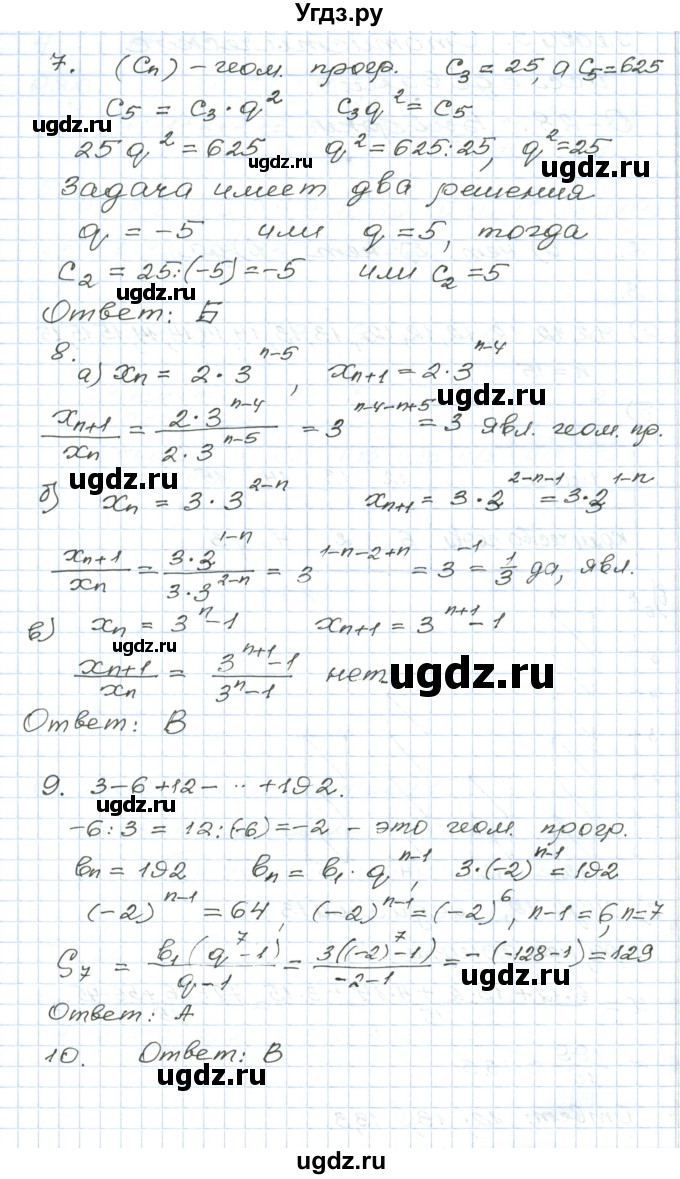 Угдз.ру
7. (Cₙ) – геом. прогр. C₃ = 25, а C₅ = 625
C₅ = C₃ · q² C₃q² = C₅
ugdz.ru
25q² = 625 q² = 625:25, q² = 25
ugdz.ru
ugdz.ru
Задача имеет два решения
q = –5 или q = 5, тогда
C₂ = 25:(–5) = –5 или C₂ = 5
ugdz.ru
Ответ: Б
8.
а) xₙ = 2 · 3ⁿ⁻⁵, xₙ₊₁ = 2 · 3ⁿ⁻⁴
ugdz.ru
xₙ₊₁/xₙ = 2·3ⁿ⁻⁴/2·3ⁿ⁻⁵ = 3ⁿ⁻⁴⁻ⁿ⁺⁵ = 3 явл. геом. пр.
ugdz.ru
б) xₙ = 3 · 3²⁻ⁿ xₙ₊₁ = 3 · 3²⁻ⁿ⁻¹ = 3 · 3¹⁻ⁿ
xₙ₊₁/xₙ = 3·3¹⁻ⁿ/3·3²⁻ⁿ = 3¹⁻ⁿ⁻²⁺ⁿ = 3⁻¹ = 1/3 да, явл.
в) xₙ = 3ⁿ – 1 xₙ₊₁ = 3ⁿ⁺¹ – 1
ugdz.ru
xₙ₊₁/xₙ = 3ⁿ⁺¹–1/3ⁿ–1 нет
ugdz.ru
Ответ: В
9. 3–6+12– ·· +192.
ugdz.ru
–6:3 = 12:(–6) = –2 – это геом. прогр.
вₙ = 192 вₙ = в₁ · qⁿ⁻¹, 3·(–2)ⁿ⁻¹ = 192
(–2)ⁿ⁻¹ = 64, (–2)ⁿ⁻¹ = (–2)⁶, n–1 = 6, n = 7
S₇ = в₁(q⁷–1)/q–1 = 3((–2)⁷–1)/–2–1 = –(–128–1) = 129
ugdz.ru
Ответ: А
10. Ответ: В
ugdz.ru
ugdz.ru